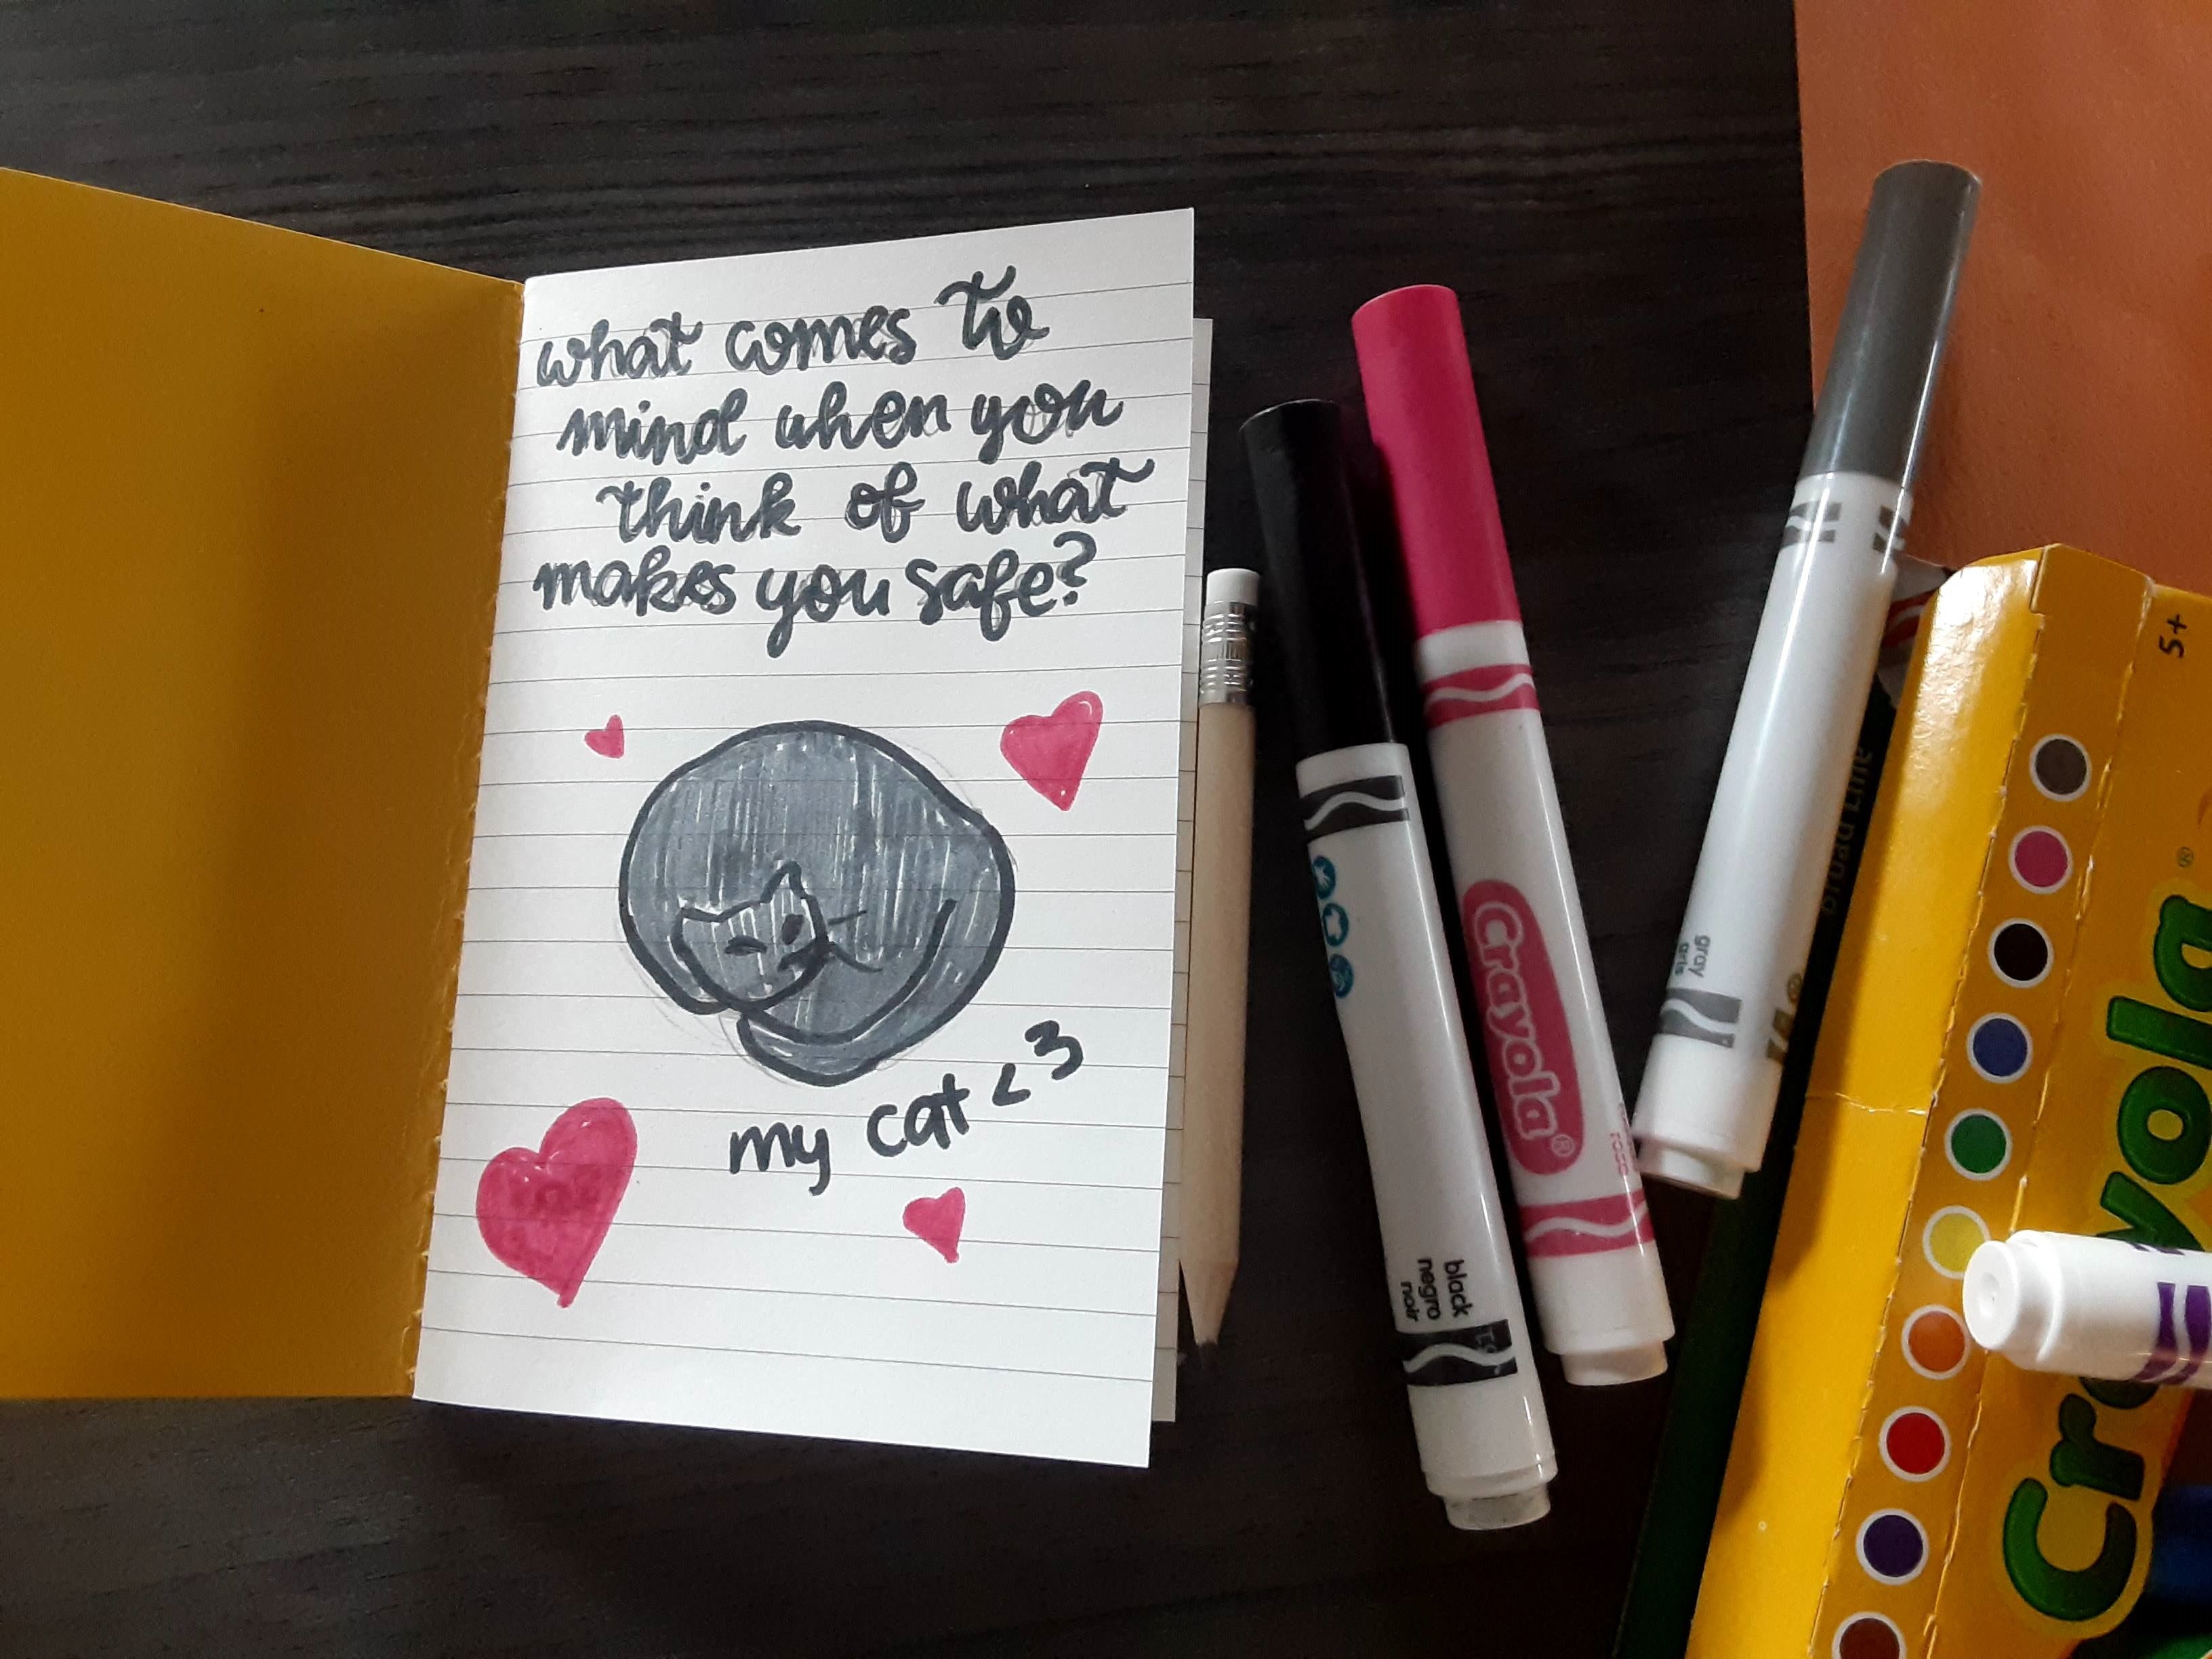 what comes to
mind when you
think of what
makes you safe?
my cat <3
Crayola®
black
negro
noir
gray
gris
Broad Line
5+
Crayola®